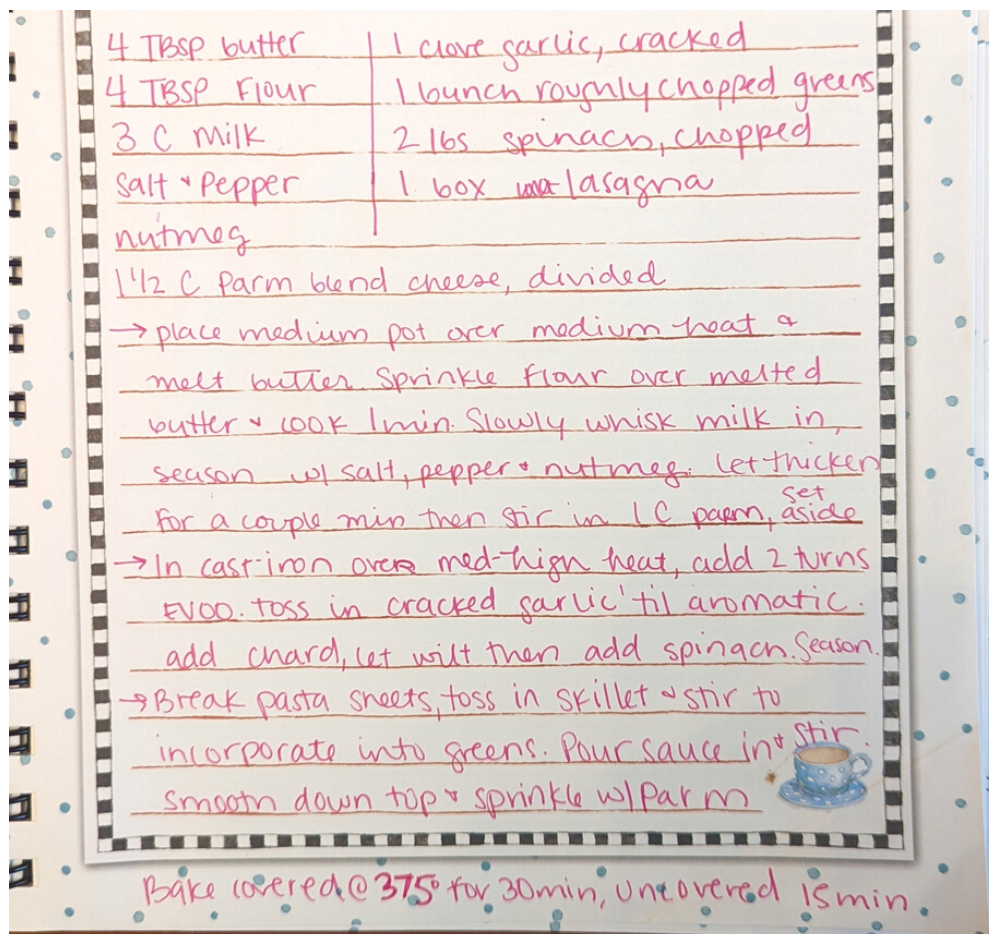 4 TBSP butter
4 TBSP Flour
3 C Milk
Salt & Pepper
nutmeg
1 1/2 C Parm blend cheese, divided
1 clove garlic, cracked
1 bunch roughly chopped greens
2 lbs spinach, chopped
1 box lasagna
→ place medium pot over medium heat &
melt butter. Sprinkle flour over melted
butter & cook 1 min. Slowly whisk milk in,
season w/ salt, pepper & nutmeg. Let thicken
for a couple min then stir in 1 C parm, set aside
→ In cast-iron over med-high heat, add 2 turns
EVOO. toss in cracked garlic 'til aromatic.
add chard, let wilt then add spinach. Season.
→ Break pasta sheets, toss in skillet & stir to
incorporate into greens. Pour sauce in & stir.
smooth down top & sprinkle w/ Parm
Bake covered @ 375° for 30 min, uncovered 15 min